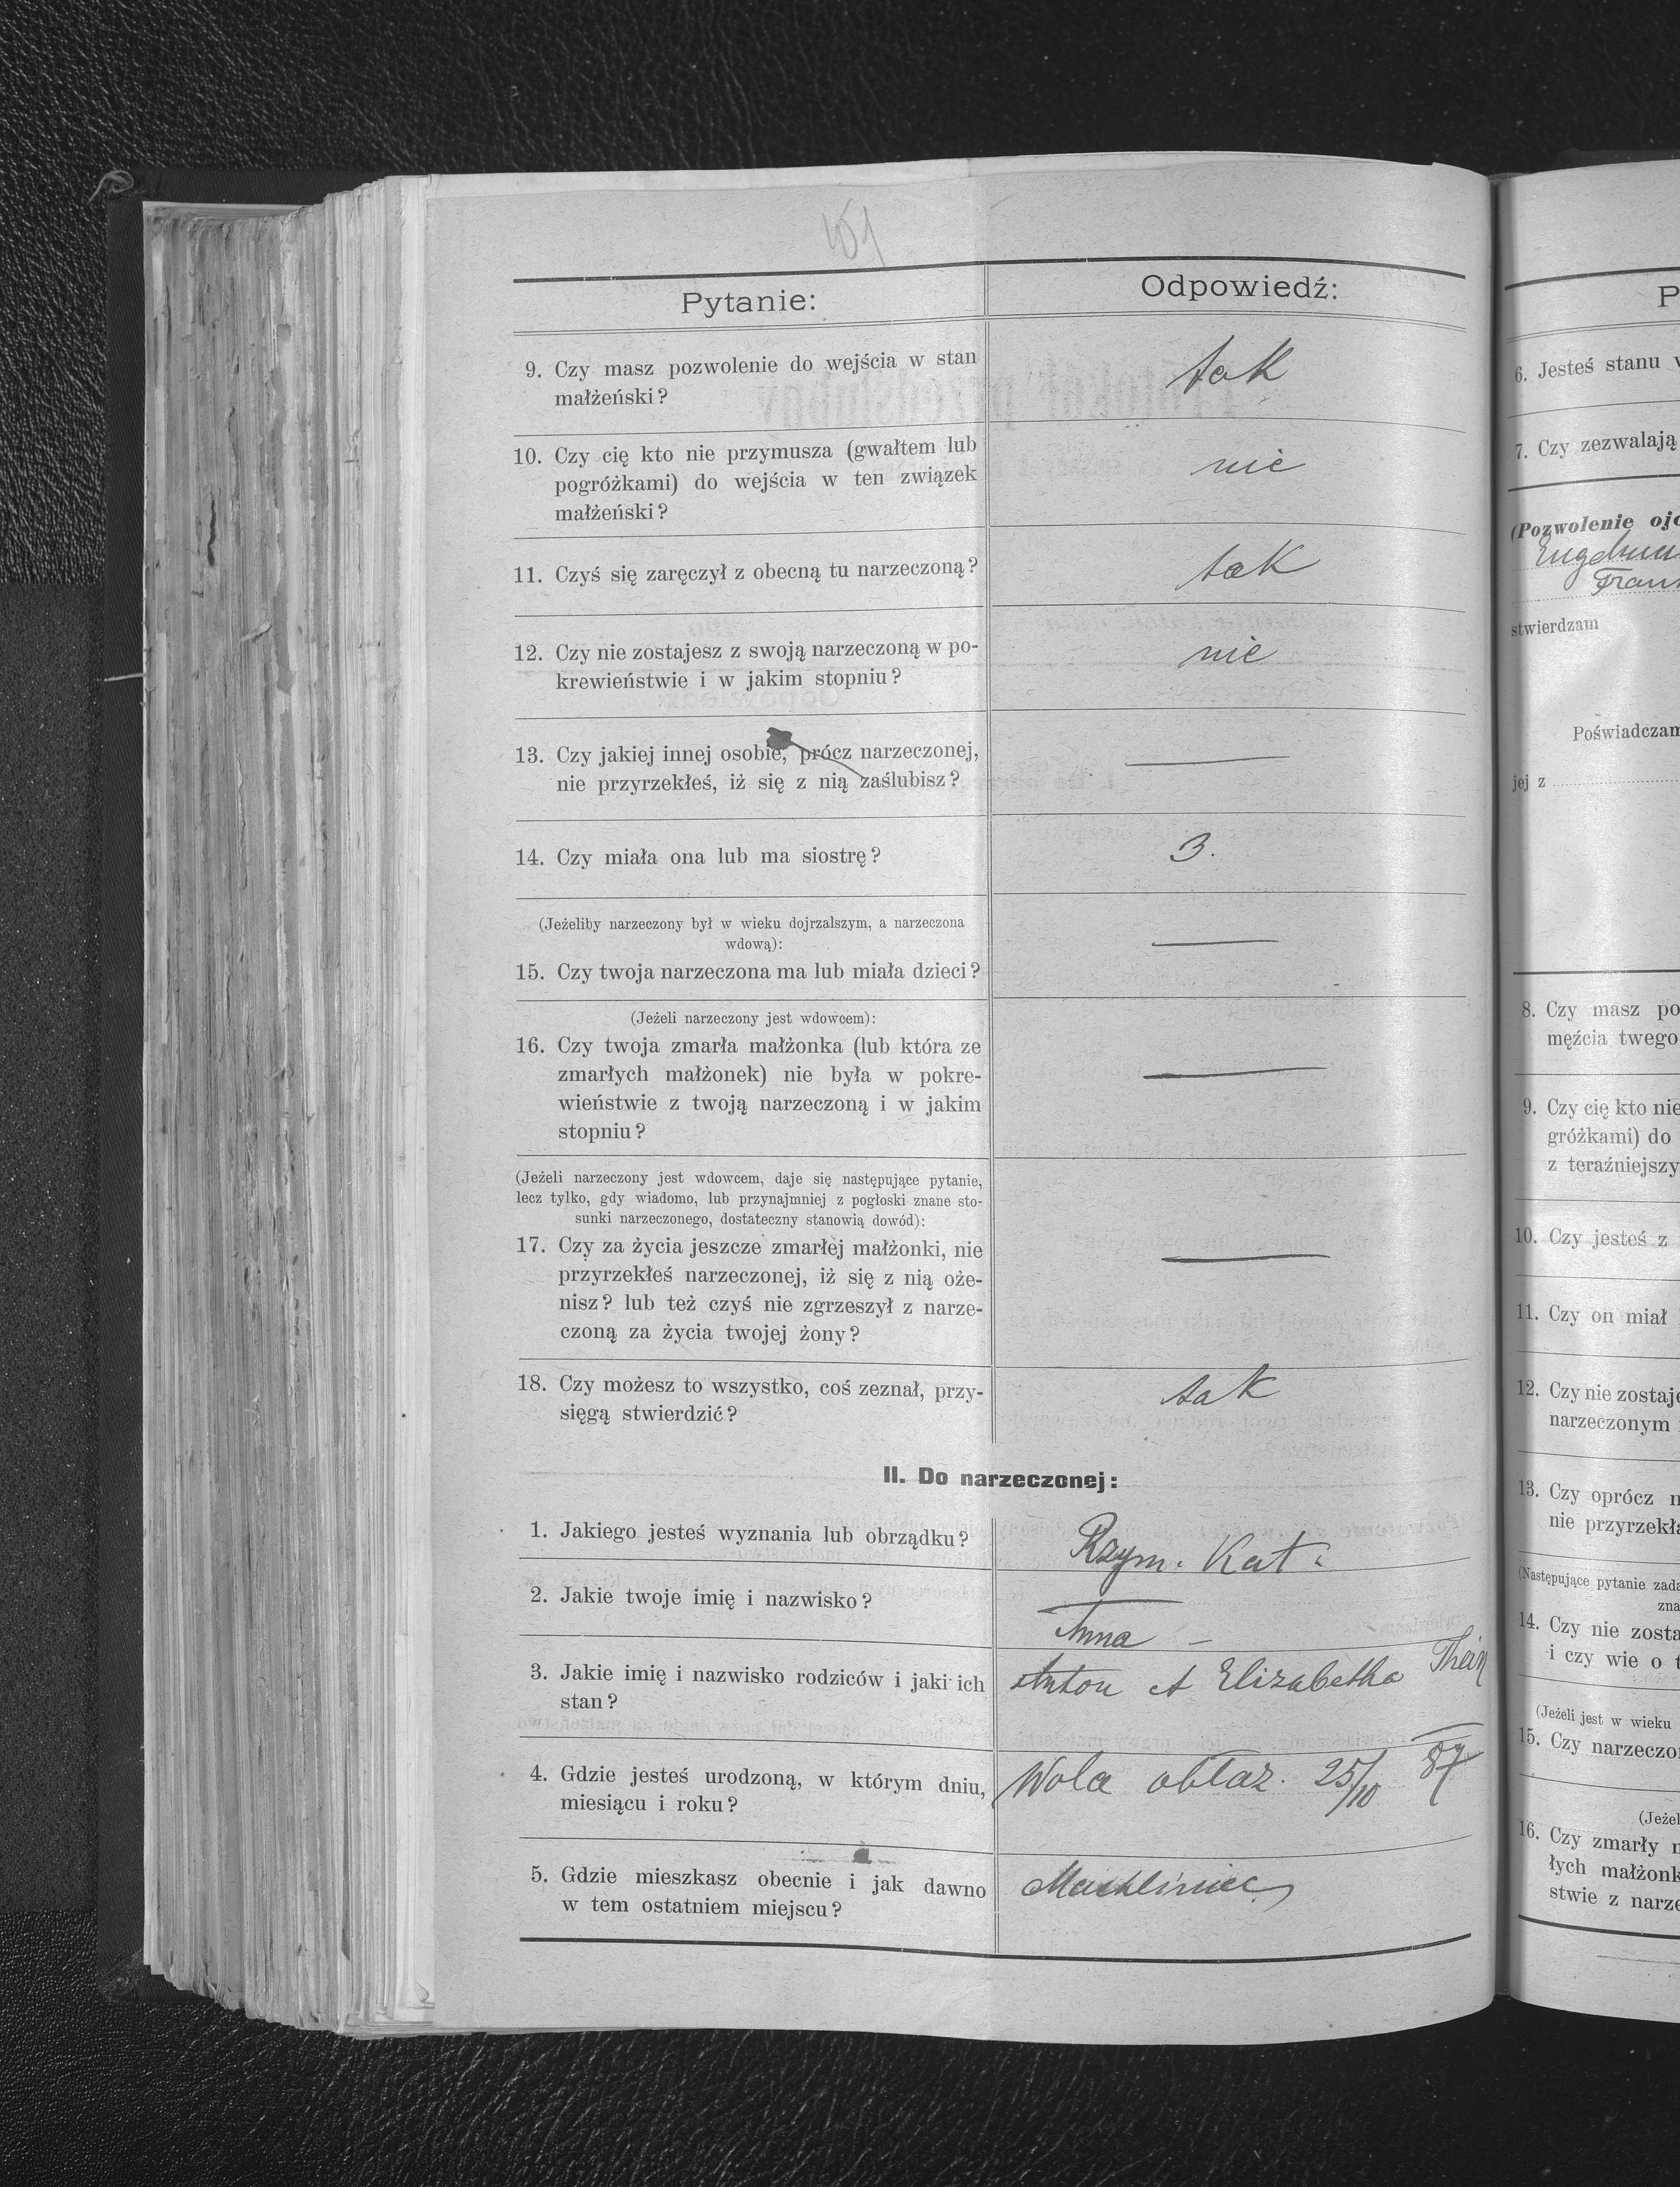 Pytanie:
Odpowiedź:
9. Czy masz pozwolenie do wejścia w stan
małżeński?
tak
10. Czy cię kto nie przymusza (gwałtem lub
pogróżkami) do wejścia w ten związek
małżeński?
nie
11. Czyś się zaręczył z obecną tu narzeczoną?
tak
12. Czy nie zostajesz z swoją narzeczoną w po-
krewieństwie i w jakim stopniu?
nie
13. Czy jakiej innej osobie, prócz narzeczonej,
nie przyrzekłeś, iż się z nią zaślubisz?
—
14. Czy miała ona lub ma siostrę?
3.
(Jeżeliby narzeczony był w wieku dojrzalszym, a narzeczona
wdową):
15. Czy twoja narzeczona ma lub miała dzieci?
—
(Jeżeli narzeczony jest wdowcem):
16. Czy twoja zmarła małżonka (lub która ze
zmarłych małżonek) nie była w pokre-
wieństwie z twoją narzeczoną i w jakim
stopniu?
—
(Jeżeli narzeczony jest wdowcem, daje się następujące pytanie,
lecz tylko, gdy wiadomo, lub przynajmniej z pogłoski znane sto-
sunki narzeczonego, dostateczny stanowią dowód):
17. Czy za życia jeszcze zmarłej małżonki, nie
przyrzekłeś narzeczonej, iż się z nią oże-
nisz? lub też czyś nie zgrzeszył z narze-
czoną za życia twojej żony?
—
18. Czy możesz to wszystko, coś zeznał, przy-
sięgą stwierdzić?
tak
II. Do narzeczonej:
1. Jakiego jesteś wyznania lub obrządku?
Rzym. Kat.
2. Jakie twoje imię i nazwisko?
Anna —
3. Jakie imię i nazwisko rodziców i jaki ich
stan?
Anton et Elizabetha
4. Gdzie jesteś urodzoną, w którym dniu,
miesiącu i roku?
Wola obłaz. 25/10 87
5. Gdzie mieszkasz obecnie i jak dawno
w tem ostatniem miejscu?
Machliniec
P
6. Jesteś stanu
7. Czy zezwalają
(Pozwolenie
stwierdzam
Poświadczam
jej z
8. Czy masz
męźcia twego
9. Czy cię kto nie
gróżkami) do
z teraźniejszy
10. Czy jesteś z
11. Czy on miał
12. Czy nie
narzeczonym
13. Czy oprócz
nie
(Następujące pytanie
14. Czy nie
i czy wie o
(Jeżeli jest w wieku
15. Czy
16. Czy zmarły
łych
stwie z